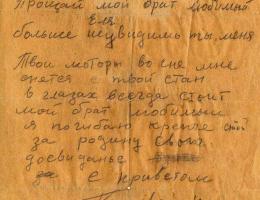 Прощай мой брат любимый
Еля
больше неувидишь ты, меня
Твои моторы во сне мне
снятся с твой стан
в глазах всегда стоит
мой брат любимый
я погибаю крепче стой
за родину свою
досвиданье
с приветом